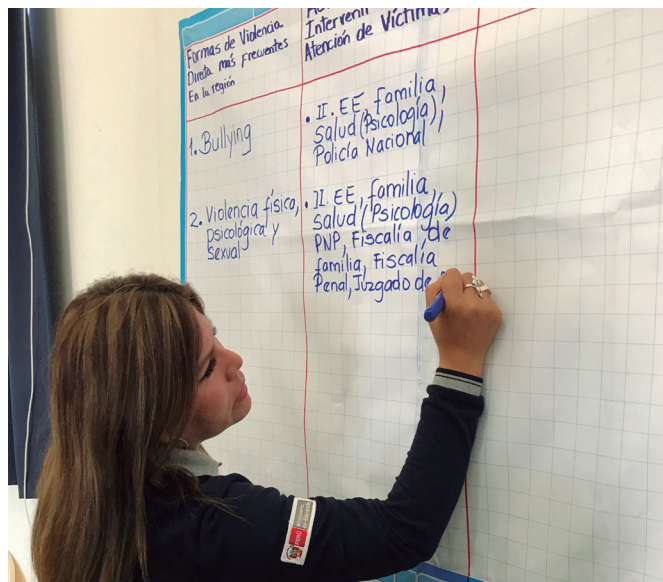 Formas de Violencia
Directa más Frecuentes
En la región
Intervenir
Atención de Víctimas
1. Bullying
• II. EE, familia,
Salud (Psicología),
Policía Nacional
2. Violencia física,
psicológica y
Sexual
• II. EE, familia,
Salud (Psicología)
PNP, Fiscalía de
familia, Fiscalía
Penal, Juzgado de
PERÚ